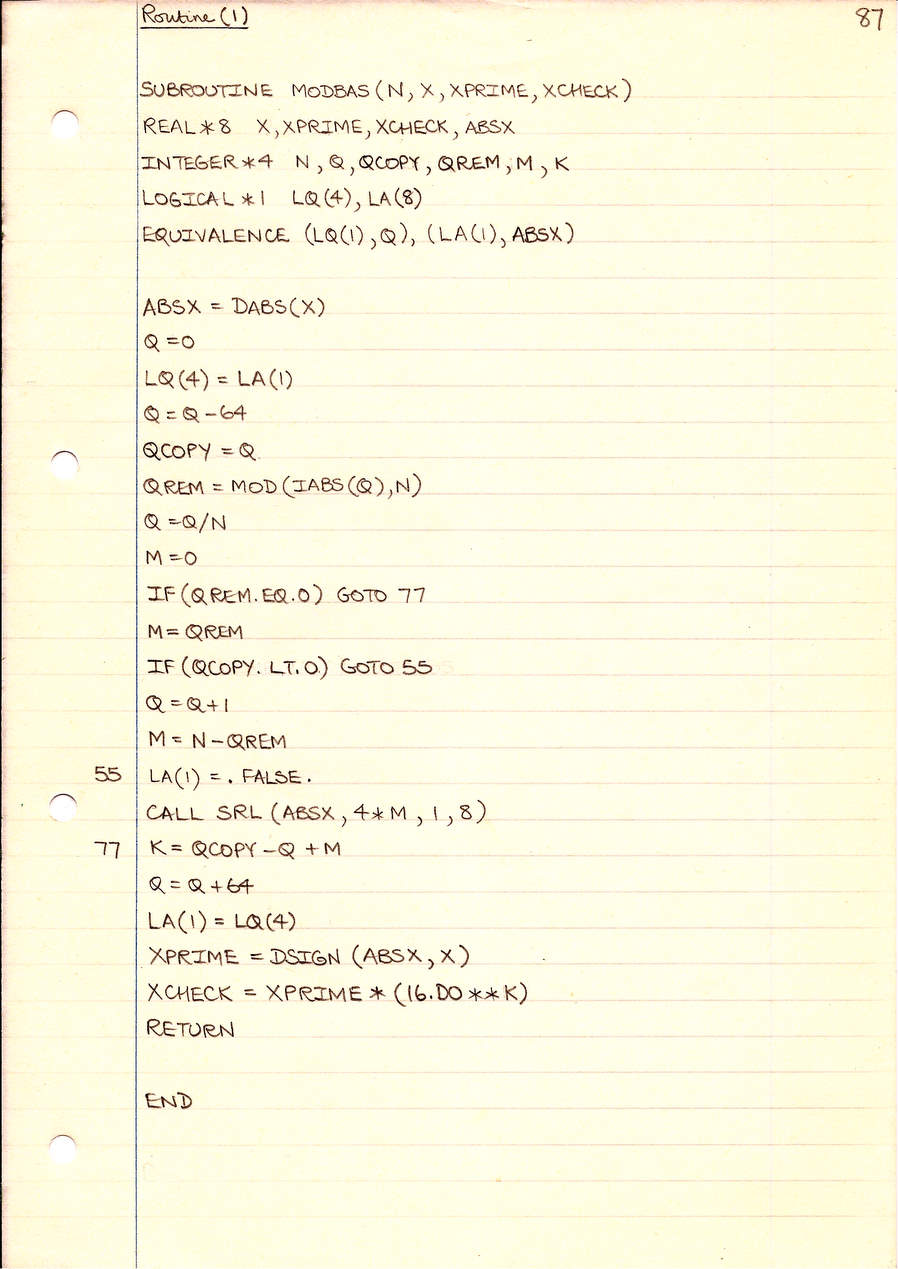 Routine (1)
87
SUBROUTINE MODBAS (N, X, XPRIME, XCHECK)
REAL*8 X, XPRIME, XCHECK, ABSX
INTEGER*4 N, Q, QCOPY, QREM, M, K
LOGICAL*1 LQ(4), LA(8)
EQUIVALENCE (LQ(1), Q), (LA(1), ABSX)
ABSX = DABS(X)
Q = 0
LQ(4) = LA(1)
Q = Q - 64
QCOPY = Q
QREM = MOD(IABS(Q), N)
Q = Q/N
M = 0
IF (QREM.EQ.0) GOTO 77
M = QREM
IF (QCOPY.LT.0) GOTO 55
Q = Q+1
M = N - QREM
55 LA(1) = .FALSE.
CALL SRL (ABSX, 4*M, 1, 8)
77 K = QCOPY - Q + M
Q = Q + 64
LA(1) = LQ(4)
XPRIME = DSIGN (ABSX, X)
XCHECK = XPRIME * (16.D0**K)
RETURN
END